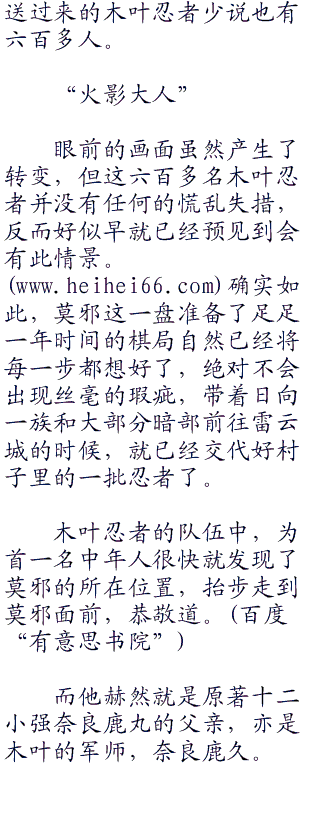 送过来的木叶忍者少说也有
六百多人。
“火影大人”
眼前的画面虽然产生了
转变，但这六百多名木叶忍
者并没有任何的慌乱失措，
反而好似早就已经预见到会
有此情景。
(www.heihei66.com)确实如
此，莫邪这一盘准备了足足
一年时间的棋局自然已经将
每一步都想好了，绝对不会
出现丝毫的瑕疵，带着日向
一族和大部分暗部前往雷云
城的时候，就已经交代好村
子里的一批忍者了。
木叶忍者的队伍中，为
首一名中年人很快就发现了
莫邪的所在位置，抬步走到
莫邪面前，恭敬道。(百度
“有意思书院”)
而他赫然就是原著十二
小强奈良鹿丸的父亲，亦是
木叶的军师，奈良鹿久。